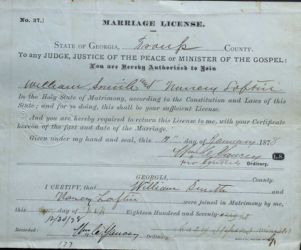 No. 37.
MARRIAGE LICENSE.
STATE OF GEORGIA, Troup COUNTY.
To any JUDGE, JUSTICE OF THE PEACE or MINISTER OF THE GOSPEL:
You are Hereby Authorized to Join
William Smith & Nancy Loftin
In the Holy State of Matrimony, according to the Constitution and Laws of this
State; and for so doing, this shall be your sufficient License.
And you are hereby required to return this License to me, with your Certificate
hereon of the fact and date of the Marriage.
Given under my hand and seal, this day of January 187
Ordinary.
GEORGIA, County
I CERTIFY, that William Smith and
Nancy Loftin were joined in Matrimony by me,
this day of Eighteen Hundred and Seventy
Recorded:
Ordinary.